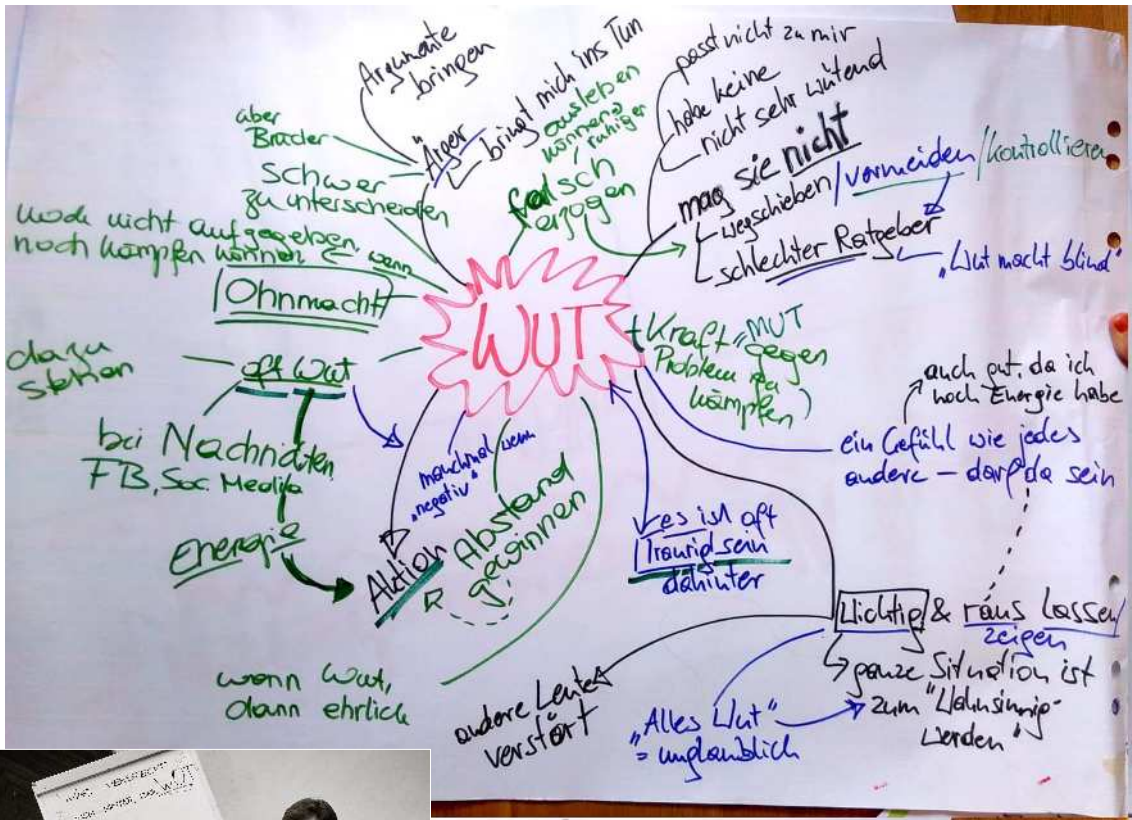 Argumente
bringen
Ärger
bringt mich ins Tun
aber
Brüder
Schwer
zu unterscheiden
ausleben
können
ruhiger
falsch
erzogen
passt nicht zu mir
habe keine
nicht sehr wütend
mag sie nicht
wegschieben/vermeiden/kontrollieren
schlechter Ratgeber
"Wut macht blind"
noch nicht aufgegeben,
noch kämpfen können
wenn
Ohnmacht
WUT
Kraft = MUT
gegen
Problem
kämpfen
dazu
stehen
oft Wut
bei Nachrichten,
FB, Soc. Media
Energie
manchmal wenn
"negativ"
Aktion
Abstand
gewinnen
auch gut, da ich
noch Energie habe
ein Gefühl wie jedes
andere – darf da sein
es ist oft
Traurigsein
dahinter
Wichtig & raus lassen/
zeigen
ganze Situation ist
zum "Wahnsinnig-
werden"
wenn Wut,
dann ehrlich
andere Leute
verstört
"Alles Wut"
= unglaublich
WUT